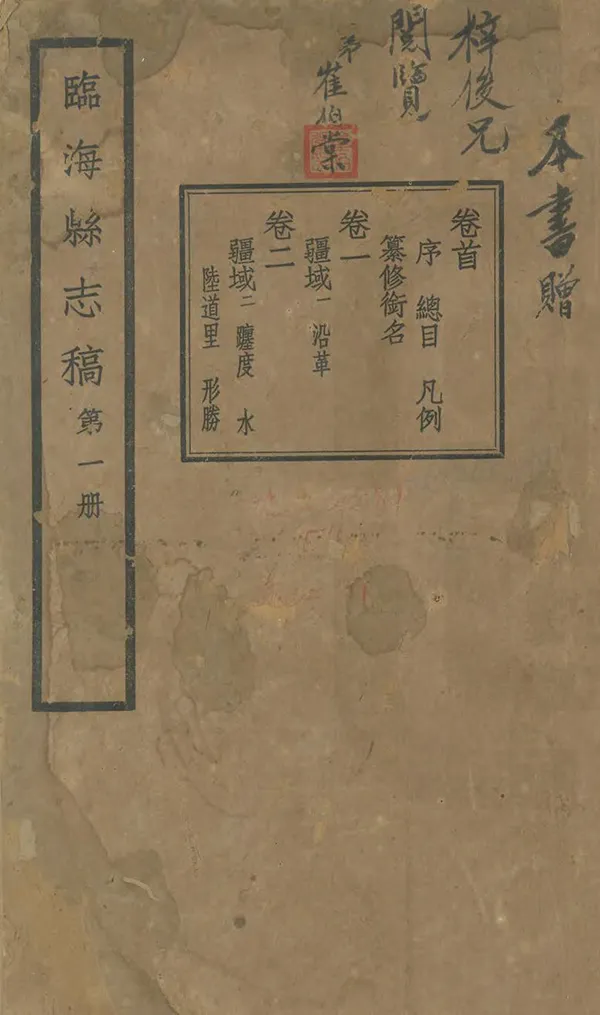 本書贈
梓俊兄
閱覽
弟崔伯棠
卷首
序 總目 凡例
纂修銜名
卷一
疆域一 沿革
卷二
疆域二 躔度 水
陸道里 形勝
臨海縣志稿 第一册